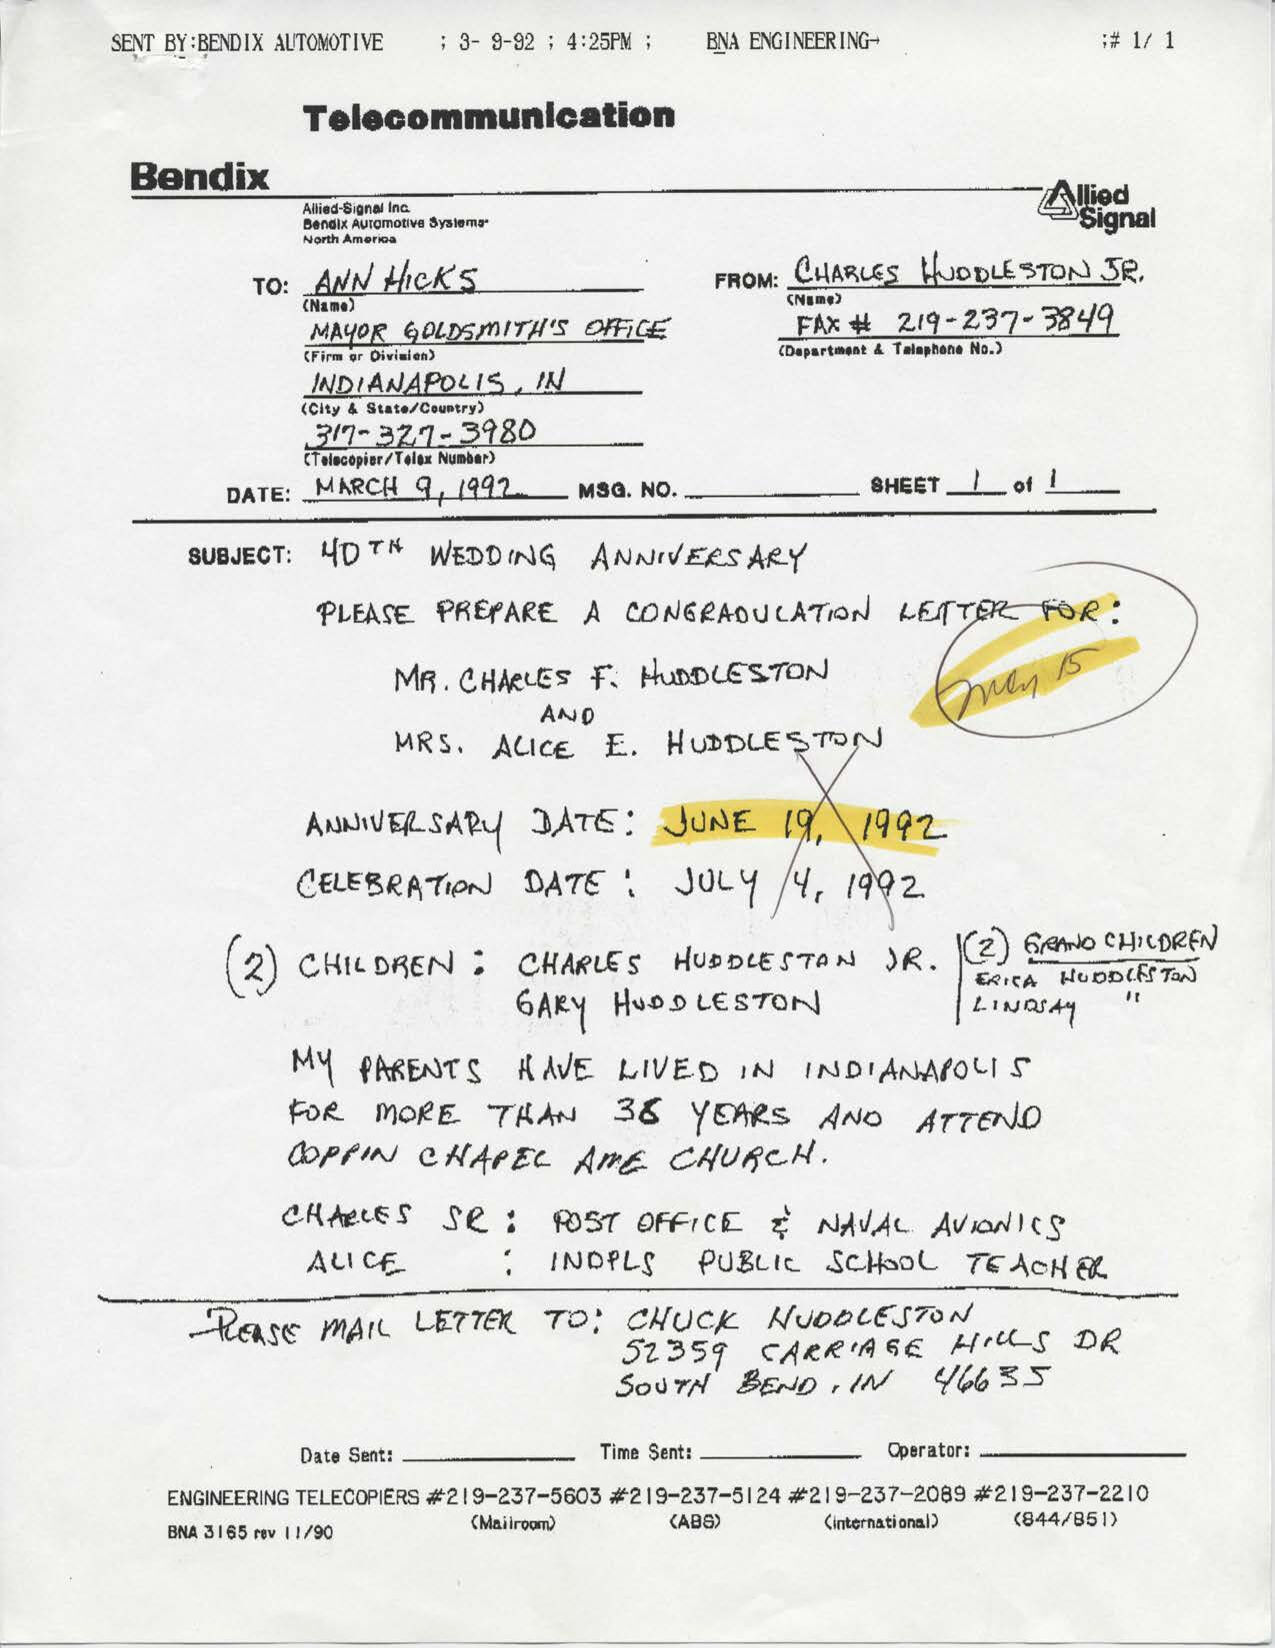 SENT BY:BENDIX AUTOMOTIVE ; 3- 9-92 ; 4:25PM ; BNA ENGINEERING→ ;# 1/ 1
Telecommunication
Bendix
Allied Signal
Allied-Signal Inc.
Bendix Automotive Systems-
North America
TO: ANN HICKS FROM: CHARLES HUDDLESTON JR.
(Name) (Name)
MAYOR GOLDSMITH'S OFFICE FAX # 219-237-3849
(Firm or Division) (Department & Telephone No.)
INDIANAPOLIS, IN
(City & State/Country)
317-327-3980
(Telecopier/Telex Number)
DATE: MARCH 9, 1992 MSG. NO. SHEET 1 of 1
SUBJECT: 40TH WEDDING ANNIVERSARY
PLEASE PREPARE A CONGRADULATION LETTER FOR:
May 15
MR. CHARLES F. HUDDLESTON
AND
MRS. ALICE E. HUDDLESTON
ANNIVERSARY DATE: JUNE 19, 1992
CELEBRATION DATE: JULY 4, 1992
(2) CHILDREN: CHARLES HUDDLESTON JR.
GARY HUDDLESTON
(2) GRANDCHILDREN
ERICA HUDDLESTON
LINDSAY "
MY PARENTS HAVE LIVED IN INDIANAPOLIS
FOR MORE THAN 38 YEARS AND ATTEND
COPPIN CHAPEL AME CHURCH.
CHARLES SR: POST OFFICE & NAVAL AVIONICS
ALICE : INDPLS PUBLIC SCHOOL TEACHER
PLEASE MAIL LETTER TO: CHUCK HUDDLESTON
52359 CARRIAGE HILLS DR
SOUTH BEND, IN 46635
Date Sent: Time Sent: Operator:
ENGINEERING TELECOPIERS #219-237-5603 #219-237-5124 #219-237-2089 #219-237-2210
(Mailroom) (ABS) (international) (844/851)
BNA 3165 rev 11/90